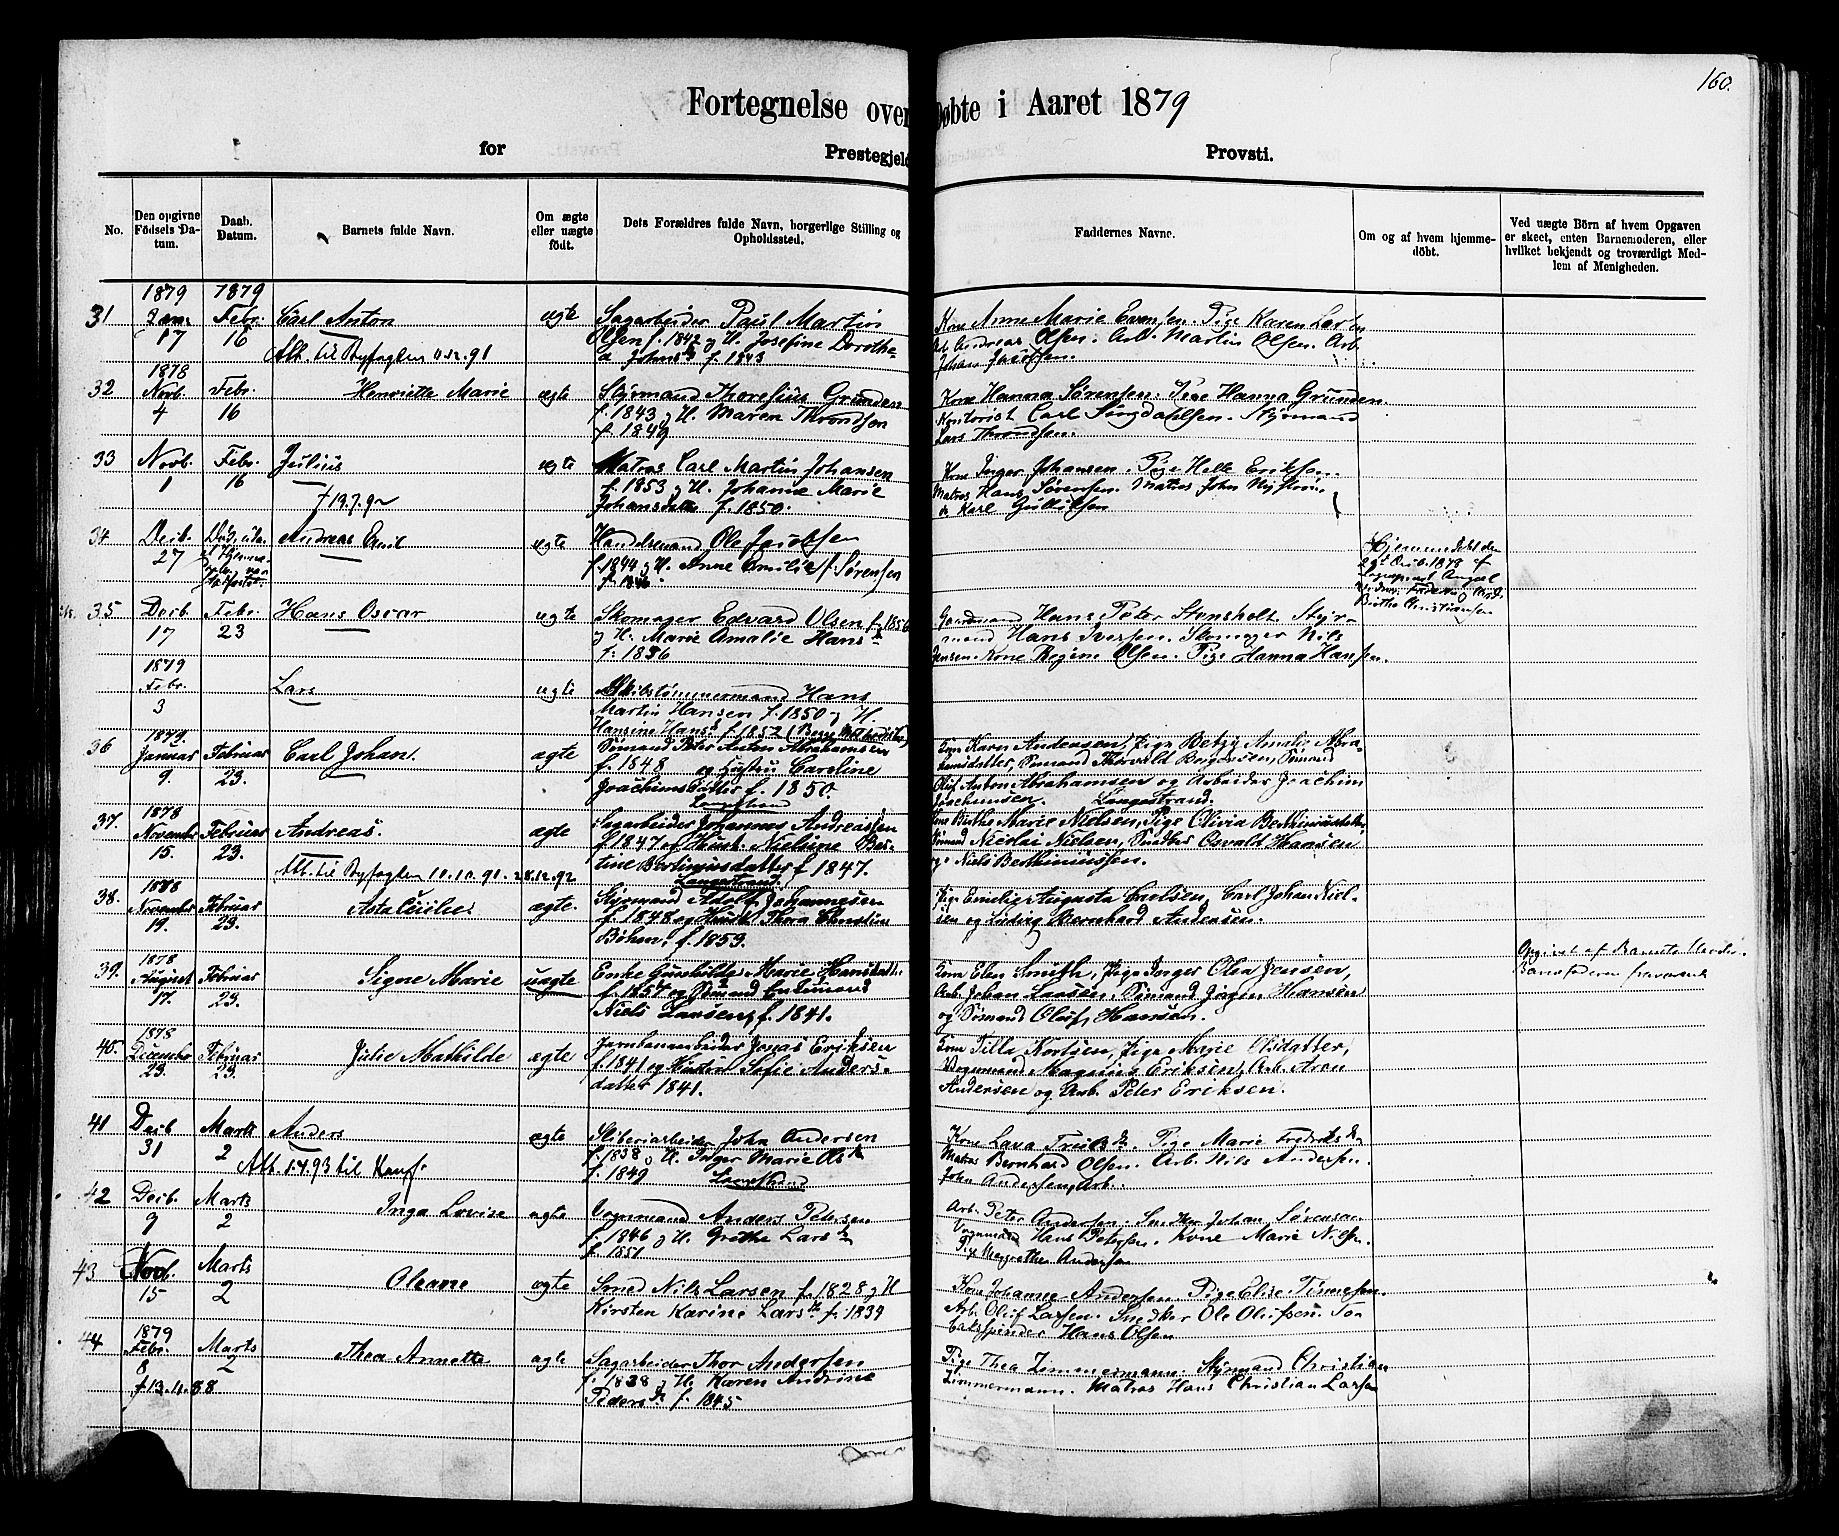 160.
Fortegnelse over Døbte i Aaret 1879
for Prestegjeld Provsti.
No.
Den opgivne Födsels Datum.
Daab. Datum.
Barnets fulde Navn.
Om ægte eller uægte födt.
Dets Forældres fulde Navn, borgerlige Stilling og Opholdssted.
Faddernes Navne.
Om og af hvem hjemmedöbt.
Ved uægte Börn af hvem Opgaven er skeet, enten Barnemoderen, eller hvilket bekjendt og troværdigt Medlem af Menigheden.
1879 1879
31 Jan. 17 Febr. 16 Carl Anton ægte Sagarbeider Paul Martin
Olsen f. 1842 og H. Josefine Dorothe-
a Johnsd. f. 1843
Kone Anne Marie Evensen. Pige Karen Larsen
Arb. Andreas Olsen. Arb. Martin Olsen. Arb.
Johan Jacobsen.
Att. til Byfogden
1878
32 Novb. 4 Febr. 16 Henriette Marie ægte Styrmand Thoresius Grunden
f. 1843 og H. Maren Throndsen
f. 1849
Kone Hanna Sørensen. Pige Hanna Grunden.
Kontorist Carl Styrmand
Lars Throndsen.
33 Novb. 1 Febr. 16 Julius ægte Matros Carl Martin Johansen
f. 1853 og H. Johanne Marie
Johansdatter f. 1850.
Kone Inger Johansen. Pige Helle Eriksen.
Matros Hans Sørensen. Matros John Nystrøm
do Karl Gulliksen
34 Decb. 27 Andreas Emil ægte Handelsmand Ole Jacobsen
f. 1844 og H. Anne Emilie Sørensen
Hjemmedøbt den
Decb. 1878 af
Birthe Christiansen
35 Decb. 17 Febr. 23 Hans Oscar ægte Skomager Edvard Olsen f. 1856
og H. Marie Amalie Hansd.
f. 1856
Gaardmand Hans Peter Stensholt. Styr-
mand Hans Iversen. Skomager Nils
Jensen. Kone Regine Olsen. Pige Hanna Hansen.
1879
Febr. 3 Lars ægte Skibstømmermand Hans
Martin Hansen f. 1850 og H.
Hansine Hansd. f. 1852
1879.
36 Januar 9 Februar 23. Carl Johan. ægte Sømand Peter Anton Abrahamsen
f. 1848 og Hustru Caroline
Joachimsdatter f. 1850.
Langestrand
Kone Karen Andersen, Pige Betzy Amalie Abra-
hamsdatter, Sømand Thorvald Sømand
Oluf Anton Abrahamsen og Arbeider Joachim
Joachimsen. Langestrand.
1878
37. November 15. Februar 23. Andreas. ægte Sagarbeider Johannes Andreassen
f. 1847 og Hustr. Nielsine Ber-
tine Bertiniusdatter f. 1847.
Langestrand.
Kone Birthe Marie Nielsen, Pige Olivia
Sømand Nicolai Nielsen, Snedker Osvald Hansen
og Niels Berthiniussen.
Att. til Byfogden 10.10.91.
1878
38. November 19. Februar 23. Asta Cecilie ægte. Styrmand Adolf Johannesen
f. 1848 og Hustr. Thora Christine
Böhm, f. 1853.
Pige Emilie Augusta Carlsen, Carl Johan Niel-
sen og Ludvig Bernhard Andersen.
1878
39. August 17. Februar 23. Signe Marie uægte Enke Gunhilde Marie Hansdatter
f. 1854 og Sømand
Niels Larsen, f. 1841.
Kone Elen Smith, Pige Inger Olea Jensen,
Arb. Johan Larsen, Sømand Jörgen Hansen
og Sømand Oluf Hansen.
Opgivet af Barnets Moder.
Barnefaderen fraværende
1878
40. December 23. Februar 23. Julie Mathilde ægte Jernbanearbeider Jonas Eriksen
f. 1841 og Hustru Sofie Anders-
datter 1841.
Kone Tilla Pige Marie Olsdatter,
Vognmand Magnus Eriksen, Arb. Aron
Andersen og Arb. Peter Eriksen.
41 Decb 31 Marts 2 Anders ægte Sliberiarbeider John Andersen
f. 1838 og H. Inger Marie Olsd.
f. 1849 Langestrand
Kone Lava Pige Marie Fredriksd.
Matros Bernhard Olsen. Arb. Nils Andersen.
John Andersen, Arb.
Att. 1.4.93 til Konf.
42 Decb. 9 Marts 2 Inga Lovise ægte Vognmand Anders Petersen
f. 1846 og H. Grethe Larsd.
f. 1851.
Arb. Peter Andersen. Snedker Johan Sørensen
Vognmand Hans Petersen. Kone Marie Nilsen.
Pige Margrethe Andersen
43 Novb. 15 Marts 2 Oleane ægte Smed Nils Larsen f. 1828 og H
Kirsten Karine Larsd. f. 1839
Kone Johanne Andersen. Pige Elise
Arb. Oluf Larsen. Snedker Ole Olufsen. To-
bakspinder Hans Olsen
1879
44 Febr. 8 Marts 2 Thea Annette ægte Sagarbeider Thor Andersen
f. 1838 og H. Karen Andrine
Pedersd. f. 1845
Pige Thea Zimmermann. Styrmand Christian
Zimmermann. Matros Hans Christian Larsen